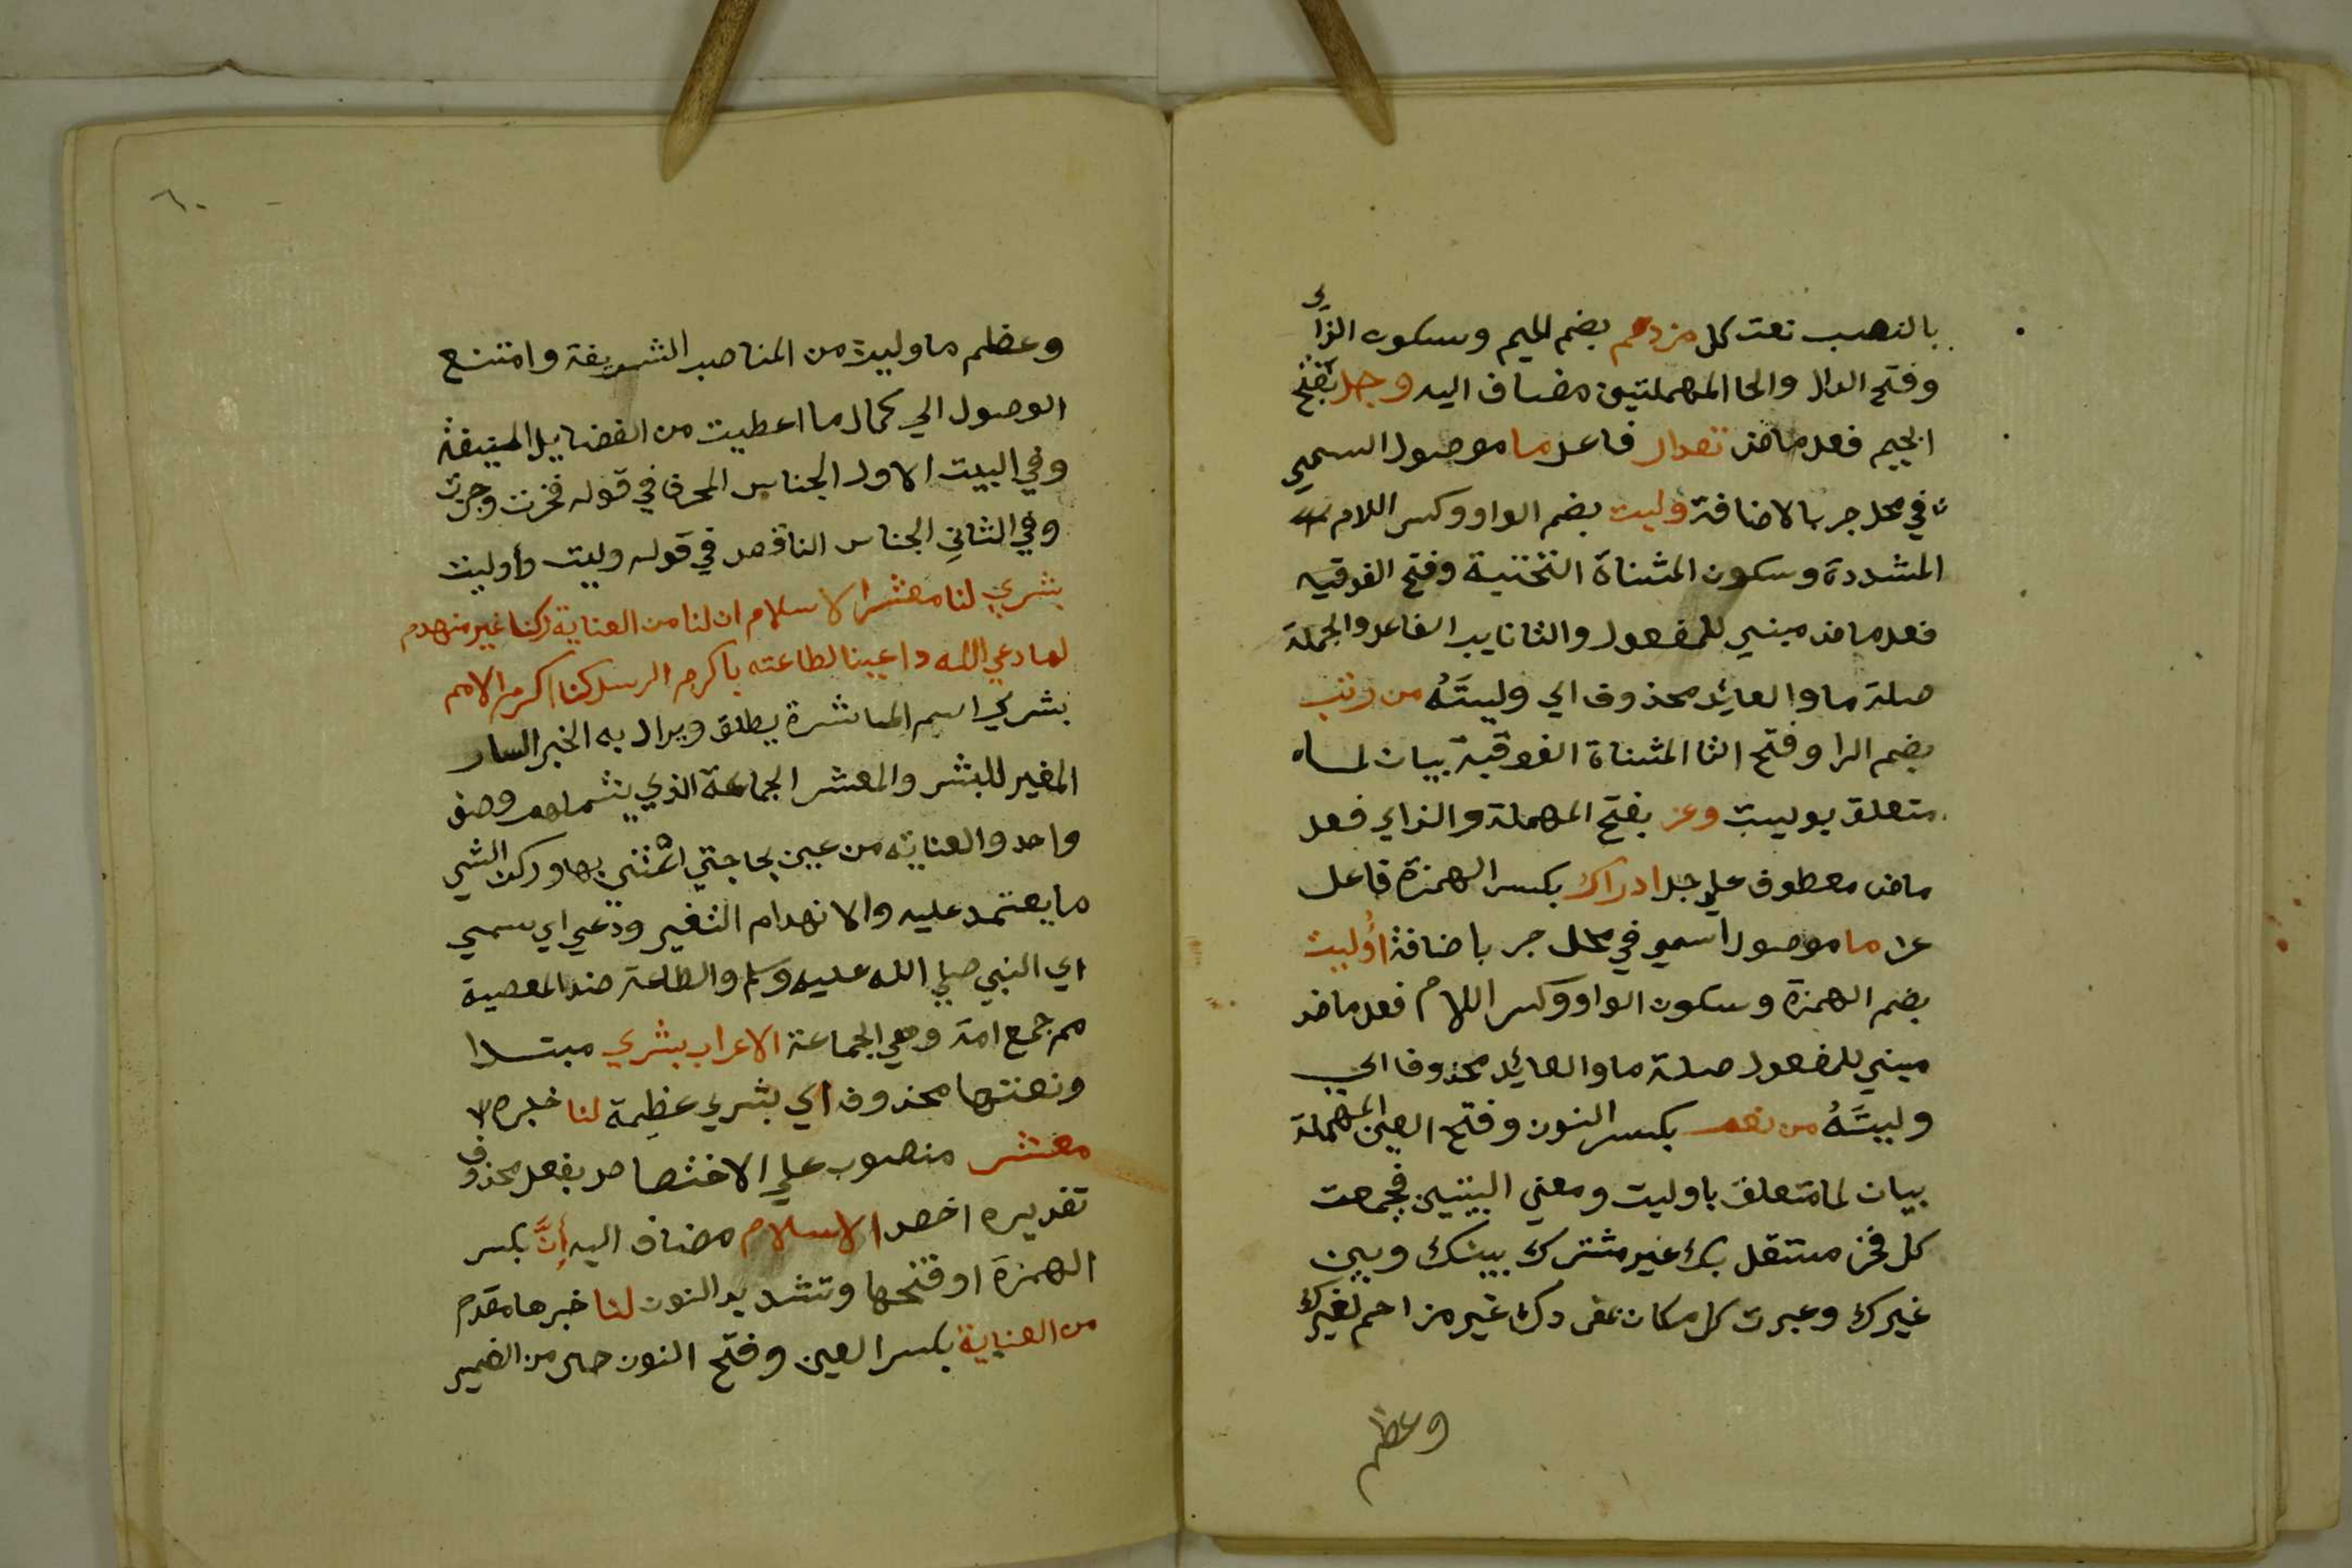 بالنصب نعت كل مزدحم بضم الميم وسكون الزاي
وفتح الدال والحا المهملتين مضاف اليه وجل بفتح
الجيم فعل ماض مقدار فاعل ما موصول اسمي
في محل جر بالاضافة وليت بضم الواو وكسر اللام
المشددة وسكون المثناة التحتية وفتح الفوقيه
فعل ماض مبني للمفعول والتا نايب الفاعل والجملة
صلة ما والعايد محذوف اي وليتَهُ من رتب
بضم الرا وفتح التا المثناة الفوقية بيان لما
متعلق بوليت وعز بفتح المهملة والزاي فعل
ماض معطوف علي جل ادراك بكسر الهمزة فاعل
عز ما موصول اسمي في محل جر باضافة اُوليت
بضم الهمزة وسكون الواو وكسر اللام فعل ماض
مبني للمفعول صلة ما والعايد محذوفا اي
وليتَهُ من نعم بكسر النون وفتح العين المهملة
بيان لما متعلق باوليت ومعني البيتين فجمعت
كل فخر مستقل بك غير مشترك بينك وبين
غيرك وعبرت كل مكان بمفردك غير مزاحم لغيرك
وعظم
٦٠
وعظم ما وليت من المناصب الشريفة وامتنع
الوصول الي كمال ما اعطيت من الفضايل المنيفة
وفي البيت الاول الجناس المحرف في قوله فخرت وجزت
وفي الثاني الجناس الناقص في قوله وليت وأوليت
بشري لنا معشر الاسلام ان لنا من العناية ركنا غير منهدم
لما دعي الله داعينا لطاعته باكرم الرسل كنا اكرم الامم
بشري اسم المباشرة يطلق ويراد به الخبر السار
المغير للبشر والمعشر الجماعة الذي يشملهم وصف
واحد والعناية من عيين بحاجتي اعتني بها وركن الشي
ما يعتمد عليه والانهدام التغير ودعي اي سمي
اي النبي صلي الله عليه وسلم والطاعة ضد المعصية
مم جمع امة وهي الجماعة الاعراب بشري مبتدا
ونعتها محذوف اي بشري عظيمة لنا خبره
معشر منصوب علي الاختصاص بفعل محذوف
تقديره اخص الاسلام مضاف اليه إنَّ بكسر
الهمزة او فتحها وتشديد النون لنا خبرها مقدم
من العناية بكسر العين وفتح النون حال من الضمير